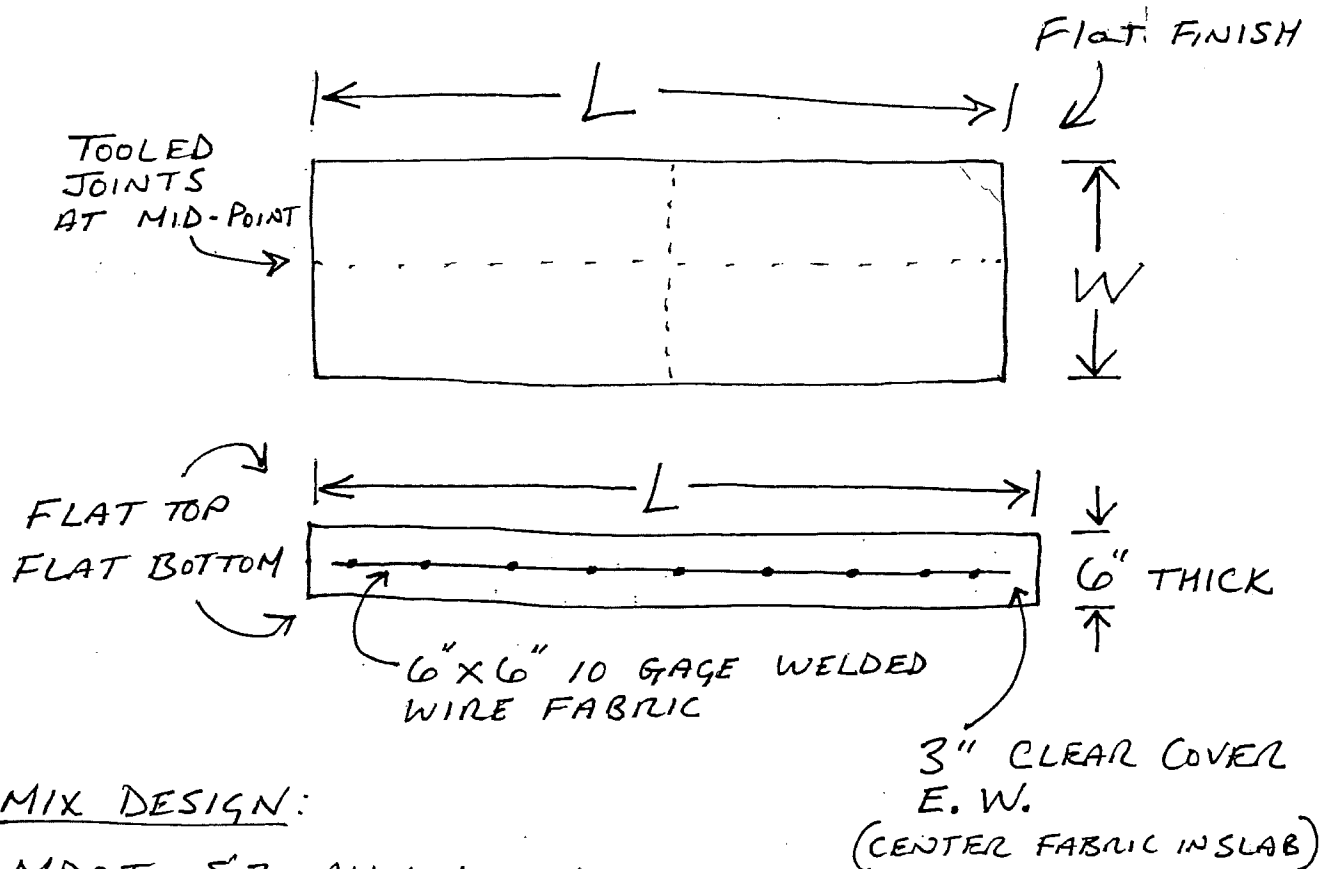 Flat FINISH
L
TOOLED
JOINTS
AT MID-POINT
W
L
FLAT TOP
FLAT BOTTOM
6" THICK
6" X 6" 10 GAGE WELDED
WIRE FABRIC
3" CLEAR COVER
E. W.
(CENTER FABRIC IN SLAB)
MIX DESIGN: